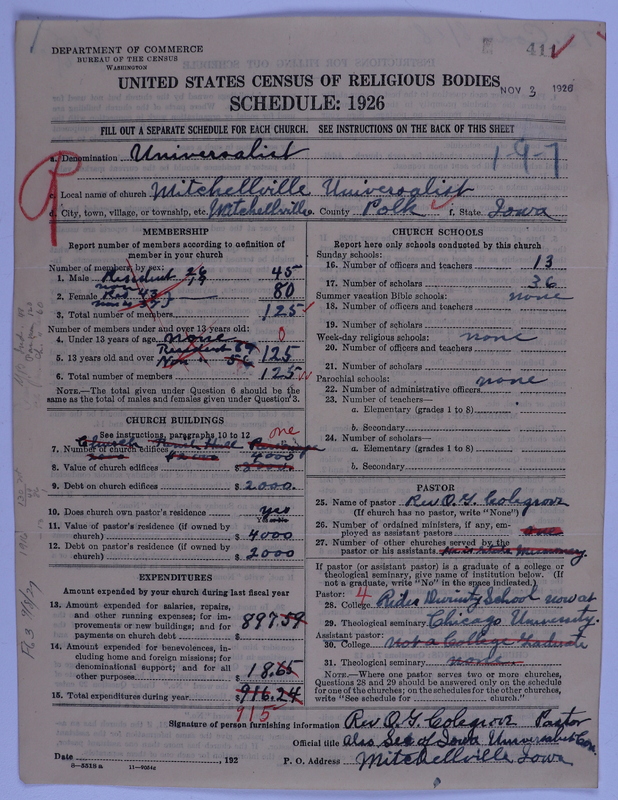 411
DEPARTMENT OF COMMERCE
BUREAU OF THE CENSUS
WASHINGTON
UNITED STATES CENSUS OF RELIGIOUS BODIES
NOV 3 1926
SCHEDULE: 1926
FILL OUT A SEPARATE SCHEDULE FOR EACH CHURCH. SEE INSTRUCTIONS ON THE BACK OF THIS SHEET
a. Denomination Universalist
19-7
c. Local name of church Mitchellville Universalist
d. City, town, village, or township, etc. Mitchellville e. County Polk f. State Iowa
MEMBERSHIP
Report number of members according to definition of
member in your church
Number of members by sex:
1. Male Resident 26 19 45
2. Female Res 43 80
3. Total number of members 125
Number of members under and over 13 years old:
4. Under 13 years of age none 0
5. 13 years old and over Resident 69 Non 56 125
6. Total number of members 125
NOTE.—The total given under Question 6 should be the
same as the total of males and females given under Question 3.
CHURCH BUILDINGS
See instructions, paragraphs 10 to 12
one
7. Number of church edifices Church
8. Value of church edifices $ 4000
9. Debt on church edifices $ 2000.
10. Does church own pastor's residence? yes
11. Value of pastor's residence (if owned by
church) $ 4000
12. Debt on pastor's residence (if owned by
church) $ 2000
EXPENDITURES
Amount expended by your church during last fiscal year
13. Amount expended for salaries, repairs,
and other running expenses; for im-
provements or new buildings; and for
payments on church debt $ 897.59
14. Amount expended for benevolences, in-
cluding home and foreign missions; for
denominational support; and for all
other purposes $ 18.65
15. Total expenditures during year $ 916.24
915
CHURCH SCHOOLS
Report here only schools conducted by this church
Sunday schools:
16. Number of officers and teachers 13
17. Number of scholars 36
Summer vacation Bible schools: none
18. Number of officers and teachers
19. Number of scholars
Week-day religious schools: none
20. Number of officers and teachers
21. Number of scholars
Parochial schools: none
22. Number of administrative officers
23. Number of teachers—
a. Elementary (grades 1 to 8)
b. Secondary
24. Number of scholars—
a. Elementary (grades 1 to 8)
b. Secondary
PASTOR
25. Name of pastor Rev O. G. Colegrove
(If church has no pastor, write "None")
26. Number of ordained ministers, if any, em-
ployed as assistant pastors
27. Number of other churches served by the
pastor or his assistants
If pastor (or assistant pastor) is a graduate of a college or
theological seminary, give name of institution below. (If
not a graduate, write "No" in the space indicated.)
Pastor: 4
28. College Rider Divinity School now at
29. Theological seminary Chicago University.
Assistant pastor:
30. College not a College Graduate
31. Theological seminary
NOTE.—Where one pastor serves two or more churches,
Questions 28 and 29 should be answered only on the schedule
for one of the churches; on the schedules for the other churches,
write "See schedule for church."
Signature of person furnishing information Rev O. G. Colegrove Pastor
Official title also Sec of Iowa Universalist Con.
Date , 192 P. O. Address Mitchellville Iowa
8—5518a 11—9024c